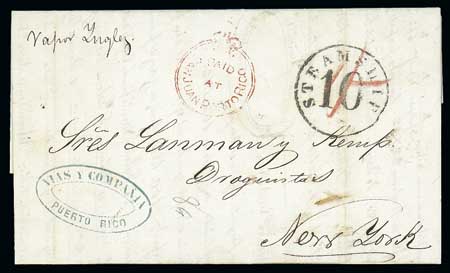 Vapor Ingles
PAID
AT
SAN JUAN PORTO RICO
STEAMSHIP
10
Sres Lanman y Kemp.
Droguistas
New York
VIAS Y COMPAÑIA
PUERTO RICO